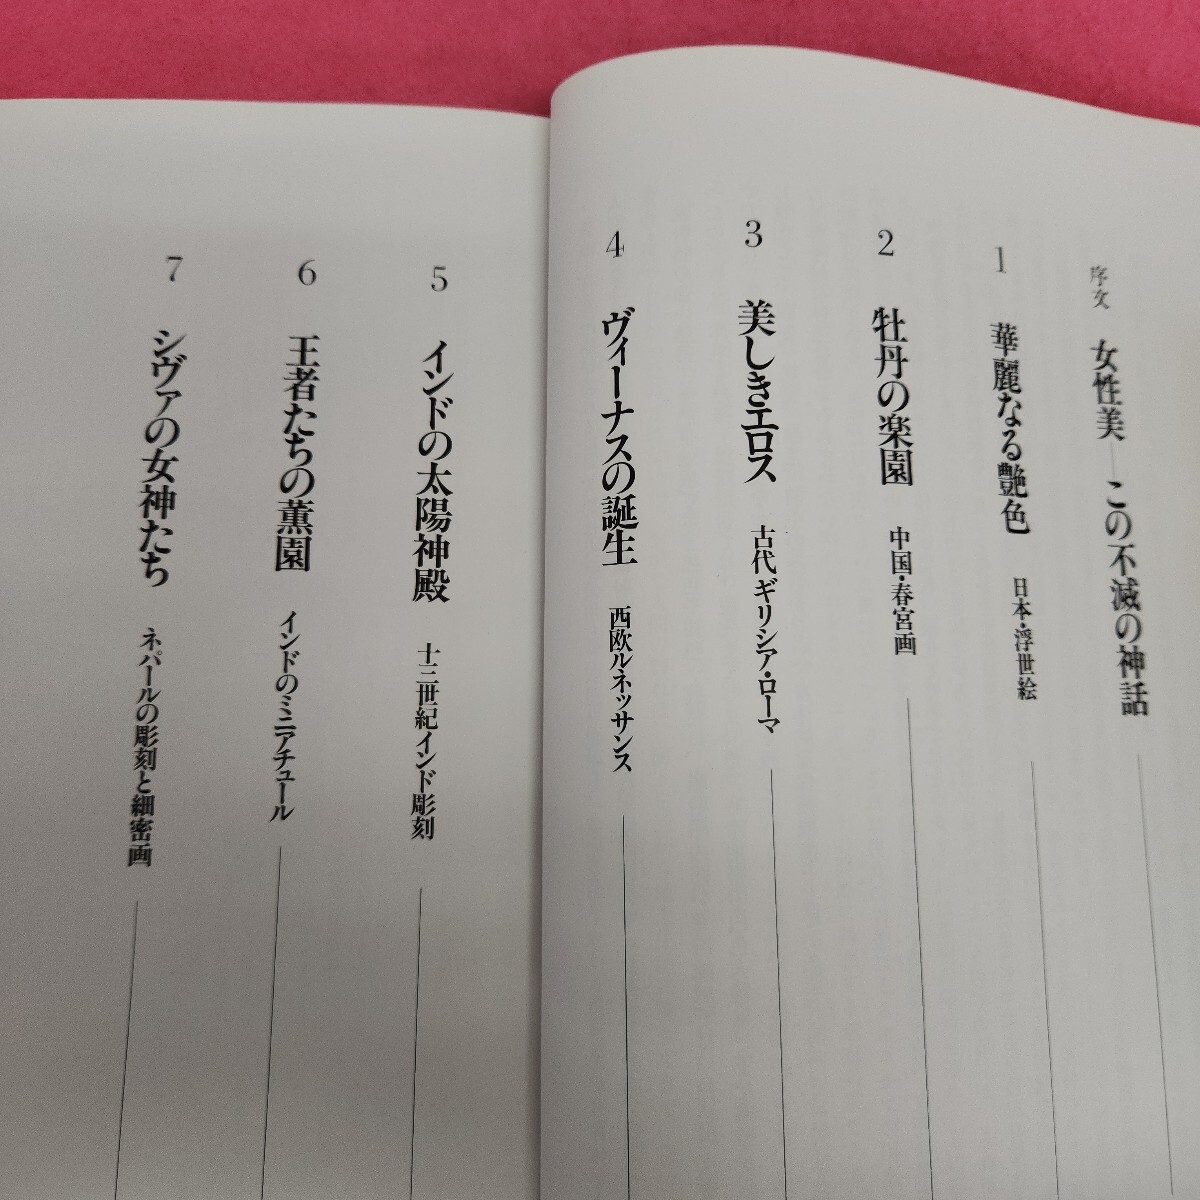 序文 女性美―この不滅の神話
1 華麗なる艶色 日本・浮世絵
2 牡丹の楽園 中国・春宮画
3 美しきエロス 古代ギリシア・ローマ
4 ヴィーナスの誕生 西欧ルネッサンス
5 インドの太陽神殿 十三世紀インド彫刻
6 王者たちの薫園 インドのミニアチュール
7 シヴァの女神たち ネパールの彫刻と細密画